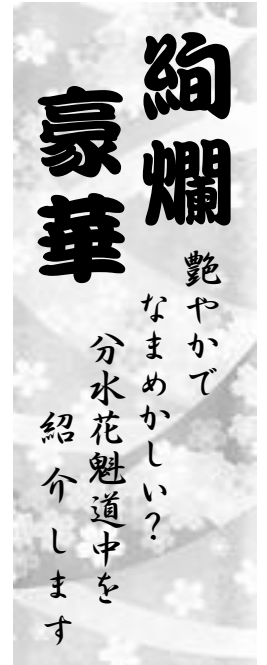 絢爛
豪華
艶やかで
なまめかしい?
分水花魁道中を
紹介します